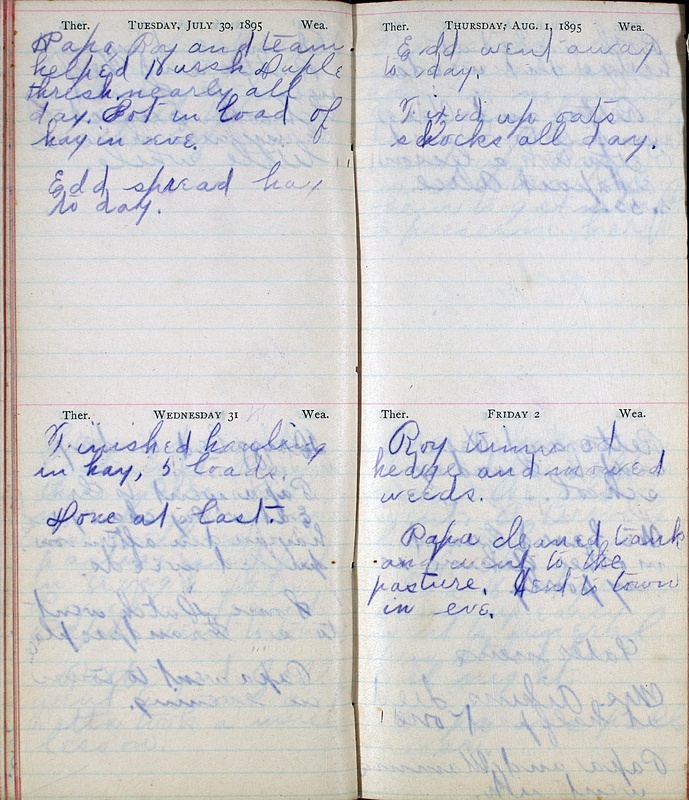 Ther. TUESDAY, JULY 30, 1895 Wea.
Papa Roy and team
helped
thresh nearly all
day. Got in load of
hay in eve.
Edd spread hay
to day.
Ther. WEDNESDAY 31 Wea.
Finished hauling
in hay, 5 loads.
Done at last.
Ther. THURSDAY, AUG. 1, 1895 Wea.
Edd went away
to day.
Fixed up oats
shocks all day.
Ther. FRIDAY 2 Wea.
Roy trimmed
hedge and mowed
weeds.
Papa cleaned tank
and went to the
pasture. Went to town
in eve.